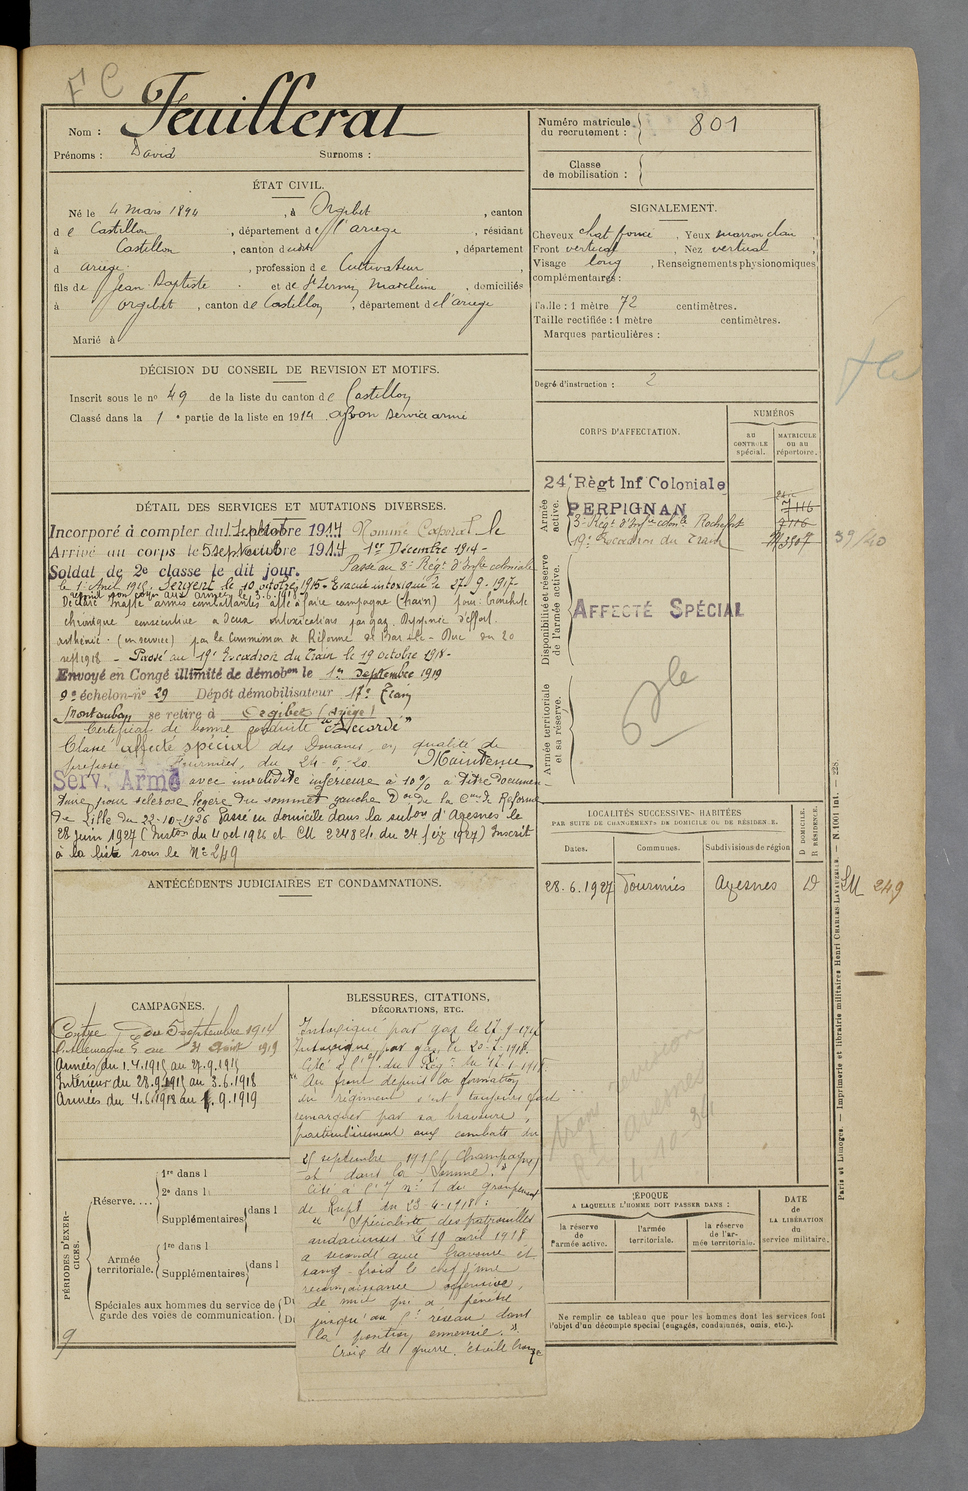 FC
Nom : Feuillerat
Prénoms : David Surnoms :
Numéro matricule du recrutement : 801
Classe de mobilisation :
ÉTAT CIVIL.
Né le 4 mars 1894, à Orgibet, canton
de Castillon, département de l'ariège, résidant
à Castillon, canton dudit, département
d ariège, profession de Cultivateur,
fils de Jean Baptiste et de St Sernin Madeleine, domiciliés
à Orgibet, canton de Castillon, département de l'ariege
Marié à
SIGNALEMENT.
Cheveux chat foncé, Yeux marron clair,
Front vertical, Nez vertical,
Visage long, Renseignements physionomiques
complémentaires :
Taille : 1 mètre 72 centimètres.
Taille rectifiée : 1 mètre centimètres.
Marques particulières :
Degré d'instruction : 2
DÉCISION DU CONSEIL DE REVISION ET MOTIFS.
Inscrit sous le nº 49 de la liste du canton de Castillon
Classé dans la 1e partie de la liste en 1914 Bon service armé
CORPS D'AFFECTATION.
NUMÉROS
au CONTROLE spécial.
MATRICULE ou au répertoire.
Armée active.
24e Règt Inf Coloniale
PERPIGNAN 7116
3e Régt d'Infie colonle Rochefort 9116
19e Escadron du Train
39/40
Disponibilité et réserve de l'armée active.
AFFECTÉ SPÉCIAL
Armée territoriale et sa réserve.
DÉTAIL DES SERVICES ET MUTATIONS DIVERSES.
Incorporé à compter du 1 septembre 1914 Nommé Caporal le
Arrivé au corps le 5 septembre 1914 1er Décembre 1914 -
Soldat de 2e classe le dit jour. Passé au 3e Régt d'Infie coloniale
le 1er Avril 1915. Sergent le 10 octobre 1915 - Evacué intoxiqué 27-9-1917-
rejoint son corps aux armées le 3.6.1918
Déclaré Inapte armes combattantes apte à faire campagne (train) pour bronchite
chronique consécutive à deux intoxications par gaz. Dyspnée d'effort.
asthénie. (en service) par la Commission de Réforme de Bar-le-Duc du 20
sept 1918 - Passé au 19e Escadron du Train le 19 octobre 1918 -
Envoyé en Congé illimité de démobon le 1er septembre 1919
9e échelon - nº 29 Dépôt démobilisateur 17e Train
Montauban se retire à Orgibet (Ariège)
Certificat de bonne conduite "Accordé"
Classé affecté spécial des Douanes, en qualité de
préposé à Fourmies, du 24-6-20. Maintenu
Serv. Armé avec invalidité inférieure à 10% à titre documen-
taire pour sclérose légère du sommet gauche Don de la Con de Réforme
de Lille du 22-10-1926 Passé en domicile dans la subon d'Avesnes le
28 juin 1927 (Inston du 4 oct 1924 et CM 2248 du 24 fév 1927) Inscrit
à la liste sous le Nº 249
LOCALITÉS SUCCESSIVES HABITÉES
PAR SUITE DE CHANGEMENTS DE DOMICILE OU DE RÉSIDENCE.
Dates. Communes. Subdivisions de région D DOMICILE. R RÉSIDENCE.
28.6.1927 Fourmies Avesnes D LM 249
ANTÉCÉDENTS JUDICIAIRES ET CONDAMNATIONS.
CAMPAGNES.
Contre Du 5 septembre 1914
l'Allemagne au 31 Août 1919
Armées du 1.4.1915 au 27.9.1917
Intérieur du 28.9.1917 au 3.6.1918
Armées du 4.6.1918 au 1.9.1919
BLESSURES, CITATIONS, DÉCORATIONS, ETC.
Intoxiqué par gaz le 27-9-1917
Intoxiqué par gaz le 20-7-1918.
Cité à l'O/ du Régt le 17-1-1918
"Au front depuis la formation
du régiment s'est toujours fait
remarquer par sa bravoure,
particulièrement aux combats du
25 septembre 1915 (Champagne)
et dans la Somme."
Cité à l'O/ nº 1 du Groupement
de Rupt du 23-4-1918 :
"Spécialiste des patrouilles
audacieuses. Le 19 avril 1918
a secondé avec bravoure et
sang-froid le chef d'une
reconnaissance offensive,
de nuit qui a pénétré
jusqu'au 2e réseau dans
la position ennemie."
Croix de guerre. Etoile bronze
PÉRIODES D'EXERCICES.
Réserve....
1re dans l
2e dans l
Supplémentaires dans l
Armée territoriale.
1re dans l
Supplémentaires dans l
Spéciales aux hommes du service de garde des voies de communication.
9
trans revision
Avesnes
4-10-34
ÉPOQUE
A LAQUELLE L'HOMME DOIT PASSER DANS :
la réserve de l'armée active.
l'armée territoriale.
la réserve de l'armée territoriale.
DATE DE LA LIBÉRATION du service militaire.
Ne remplir ce tableau que pour les hommes dont les services font
l'objet d'un décompte spécial (engagés, condamnés, omis, etc.).
Paris et Limoges. — Imprimerie et librairie militaires Henri CHARLES-LAVAUZELLE. — N. 1001 Int. — 228.